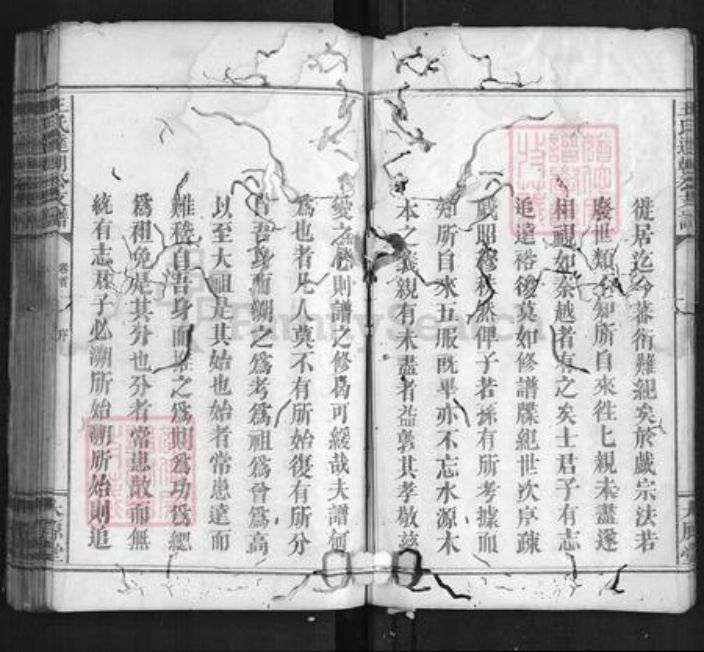 徙居迄今蕃衍難紀矣於戲宗法若
廢世類不知所自來徃匕親未盡遂
相視如秦越者有之矣士君子有志
追遠裕後莫如修譜牒紀世次序疎
戚昭穆秩然俾子若孫有所考據而
知所自來五服既畢亦不忘水源木
本之義親有未盡者益敦其孝敬慈
愛之心則譜之修曷可緩哉夫譜何
爲也者凡人莫不有所始復有所分
自吾身而溯之爲考爲祖爲曾爲高
以至大祖是其始也始者常患遠而
難稽自吾身而推之爲則爲功爲緦
爲祖免是其分也分者常患散而無
統有志君子必溯所始溯所始則追
王氏達朝公支譜
卷首
序
太原堂
FamilySearch